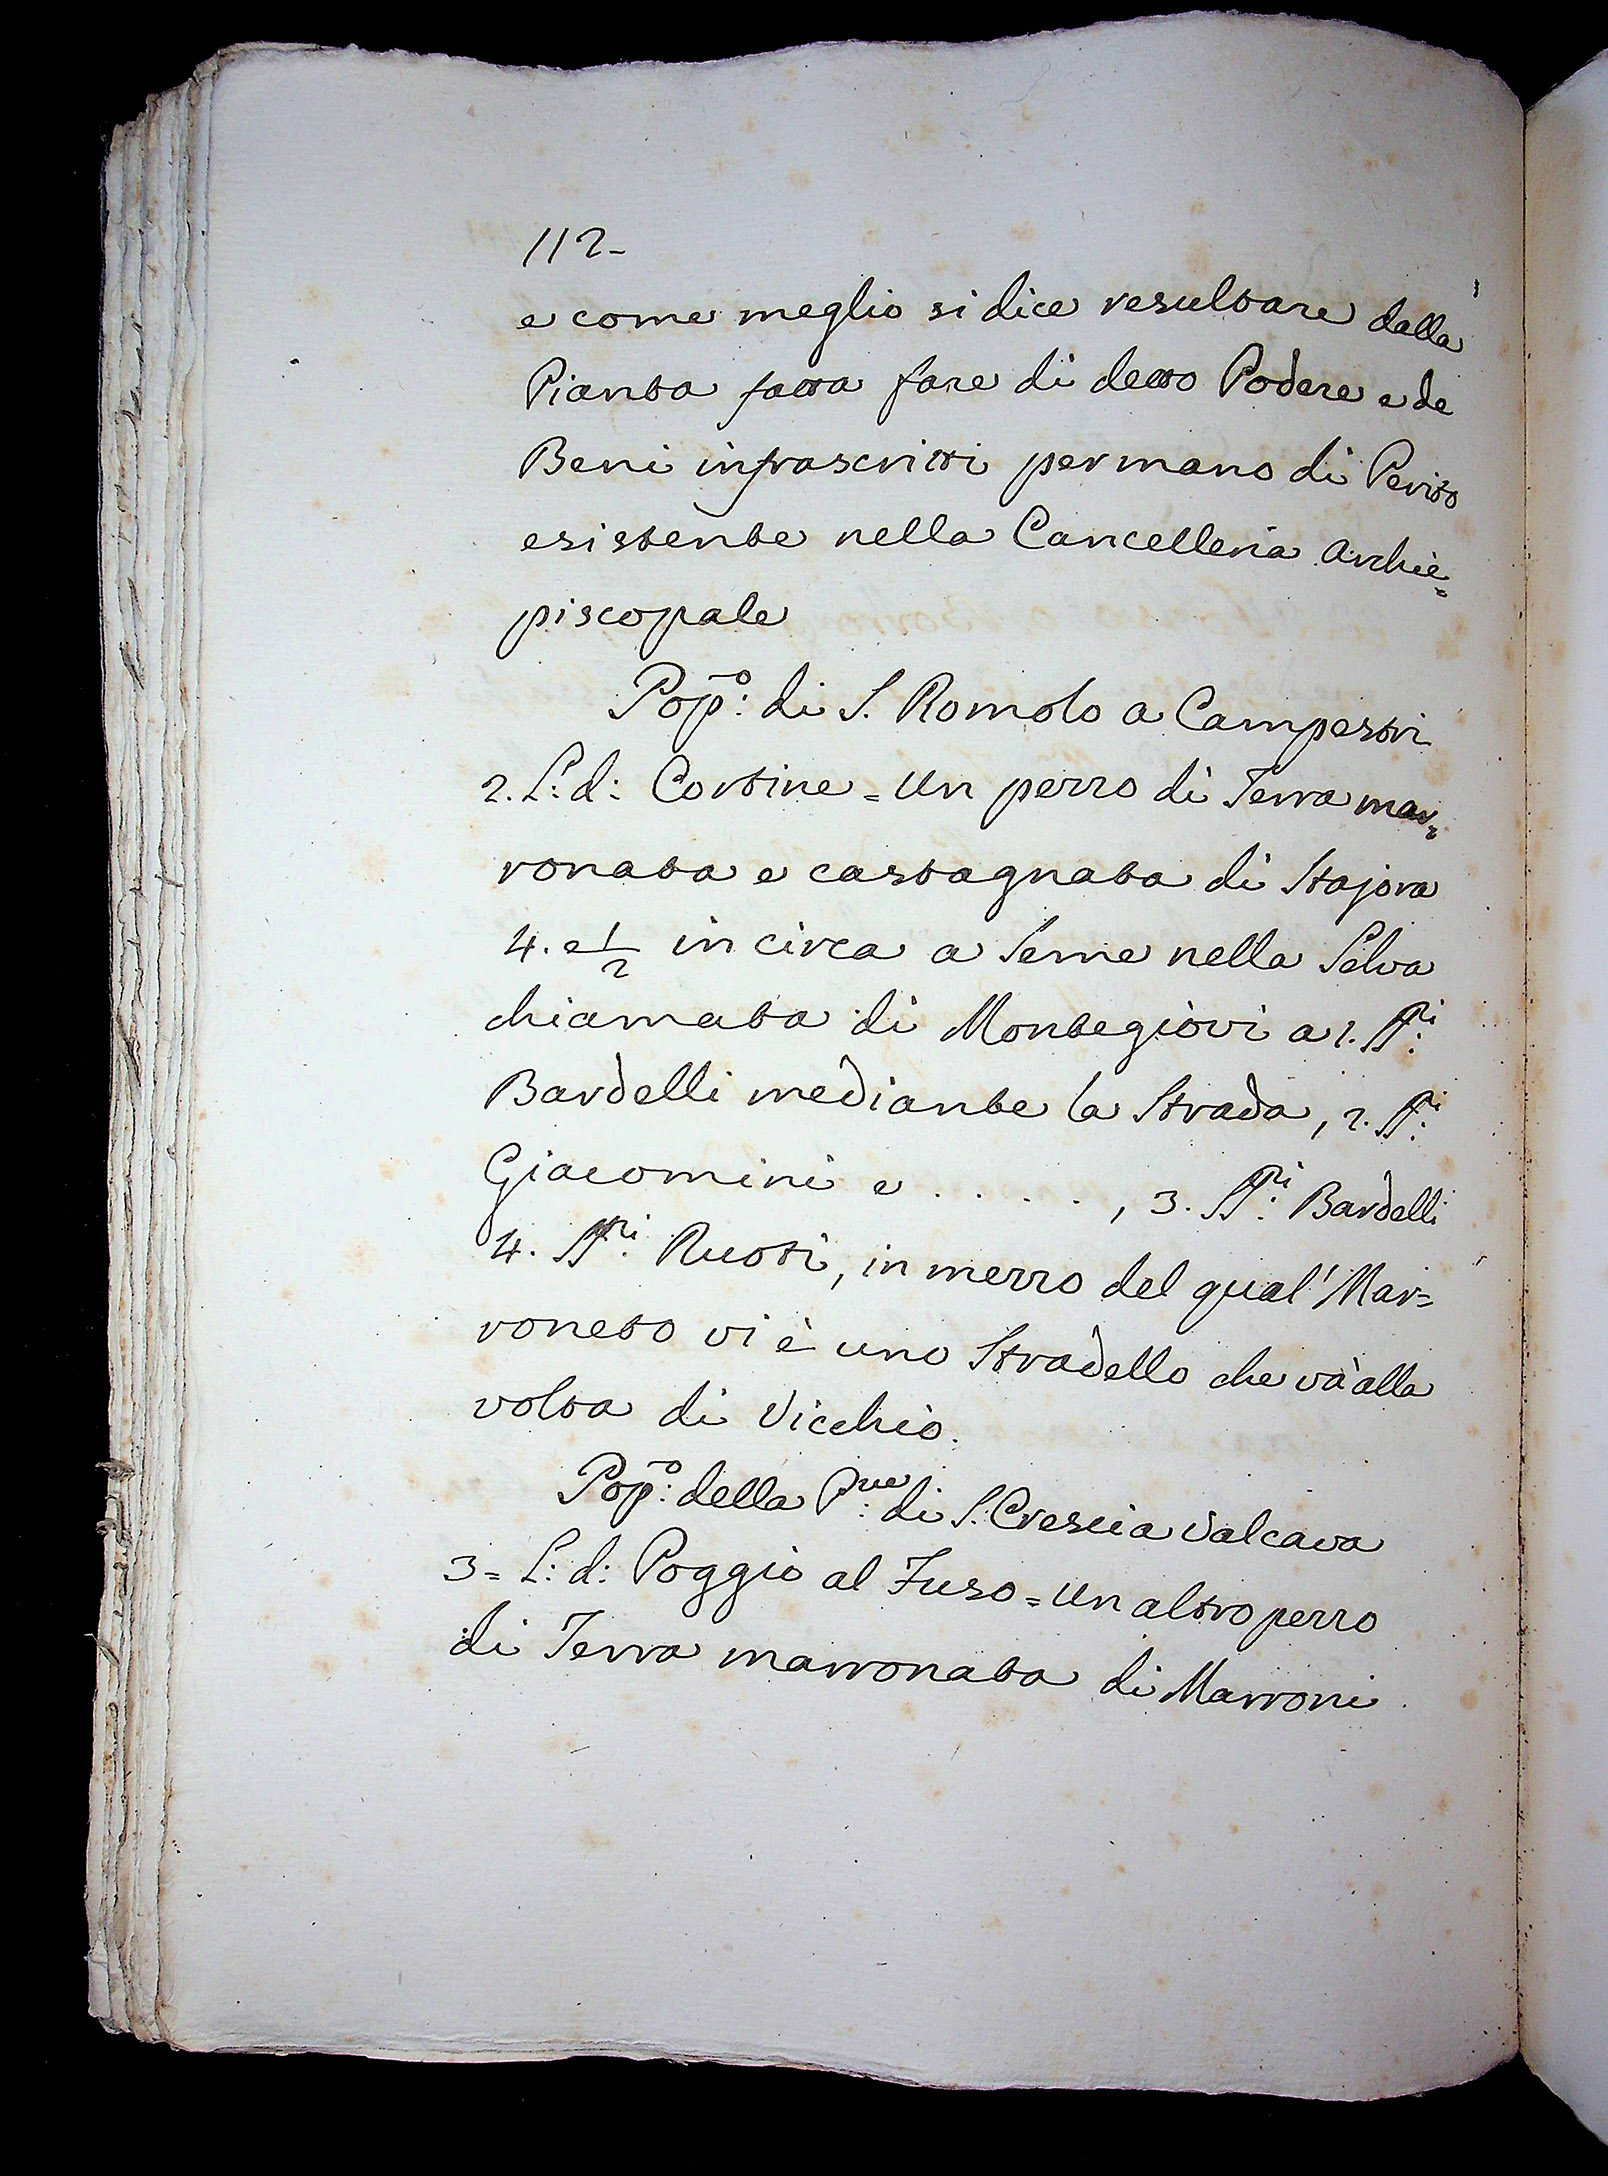 112-
e come meglio si dice resultare dalla
Pianta fatta fare di detto Podere e de
Beni infrascritti per mano di Perito
esistente nella Cancelleria Archie=
piscopale
Pop:º di S. Romolo a Campestri
2. L: d: Cortine = Un pezzo di Terra mar=
ronata e castagnata di Stajora
4. e 1/2 in circa a Seme nella Selva
chiamata di Montegiovi a 1. SS:ri
Bardelli mediante la Strada, 2. SS:ri
Giacomini e . . . . . , 3. SS:ri Bardelli
4. SS:ri Ruoti, in mezzo del qual' Mar=
roneto vi è uno Stradello che và alla
volta di Vicchio.
Pop:º della P:ve di S. Crescia Valcava
3= L: d: Poggio al Fuso = Un altro pezzo
di Terra marronata di Marroni